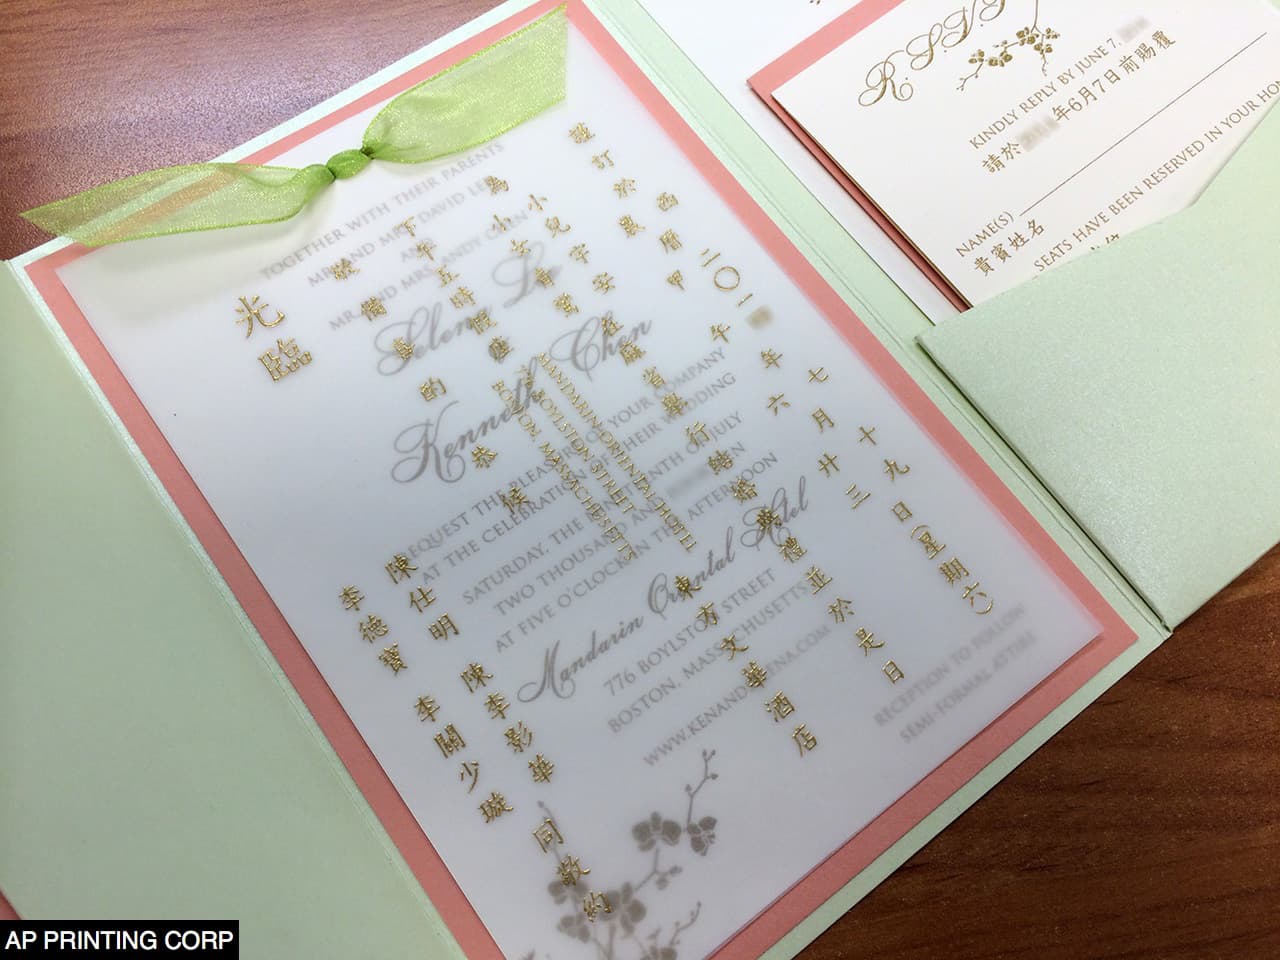 TOGETHER WITH THEIR PARENTS
MR. AND MRS. DAVID LEE
AND
MR. AND MRS. ANDY CHEN
Selena Lee
Kenneth Chen
REQUEST THE PLEASURE OF YOUR COMPANY
AT THE CELEBRATION OF THEIR WEDDING
SATURDAY, THE NINETEENTH OF JULY
TWO THOUSAND AND
AT FIVE O'CLOCK IN THE AFTERNOON
Mandarin Oriental Hotel
776 BOYLSTON STREET
BOSTON, MASSACHUSETTS
WWW.KENANDSELENA.COM
RECEPTION TO FOLLOW
SEMI-FORMAL ATTIRE
謹訂於
西曆二〇一 年七月十九日(星期六)
農 甲午年六月廿三
為
小兒宇安
小女
在麻省舉行結婚典禮並於是日
下午五時假座
東方文華酒店
MANDARIN ORIENTAL HOTEL
BOYLSTON STREET
BOSTON, MASSACHUSETTS
敬備 的恭候
光臨
陳仕明 陳李影華
李德寶 李關少珹
同敬約
R.S.V.P.
KINDLY REPLY BY JUNE 7,
請於 年6月7日前賜覆
NAME(S)
貴賓姓名
SEATS HAVE BEEN RESERVED IN YOUR HON
AP PRINTING CORP